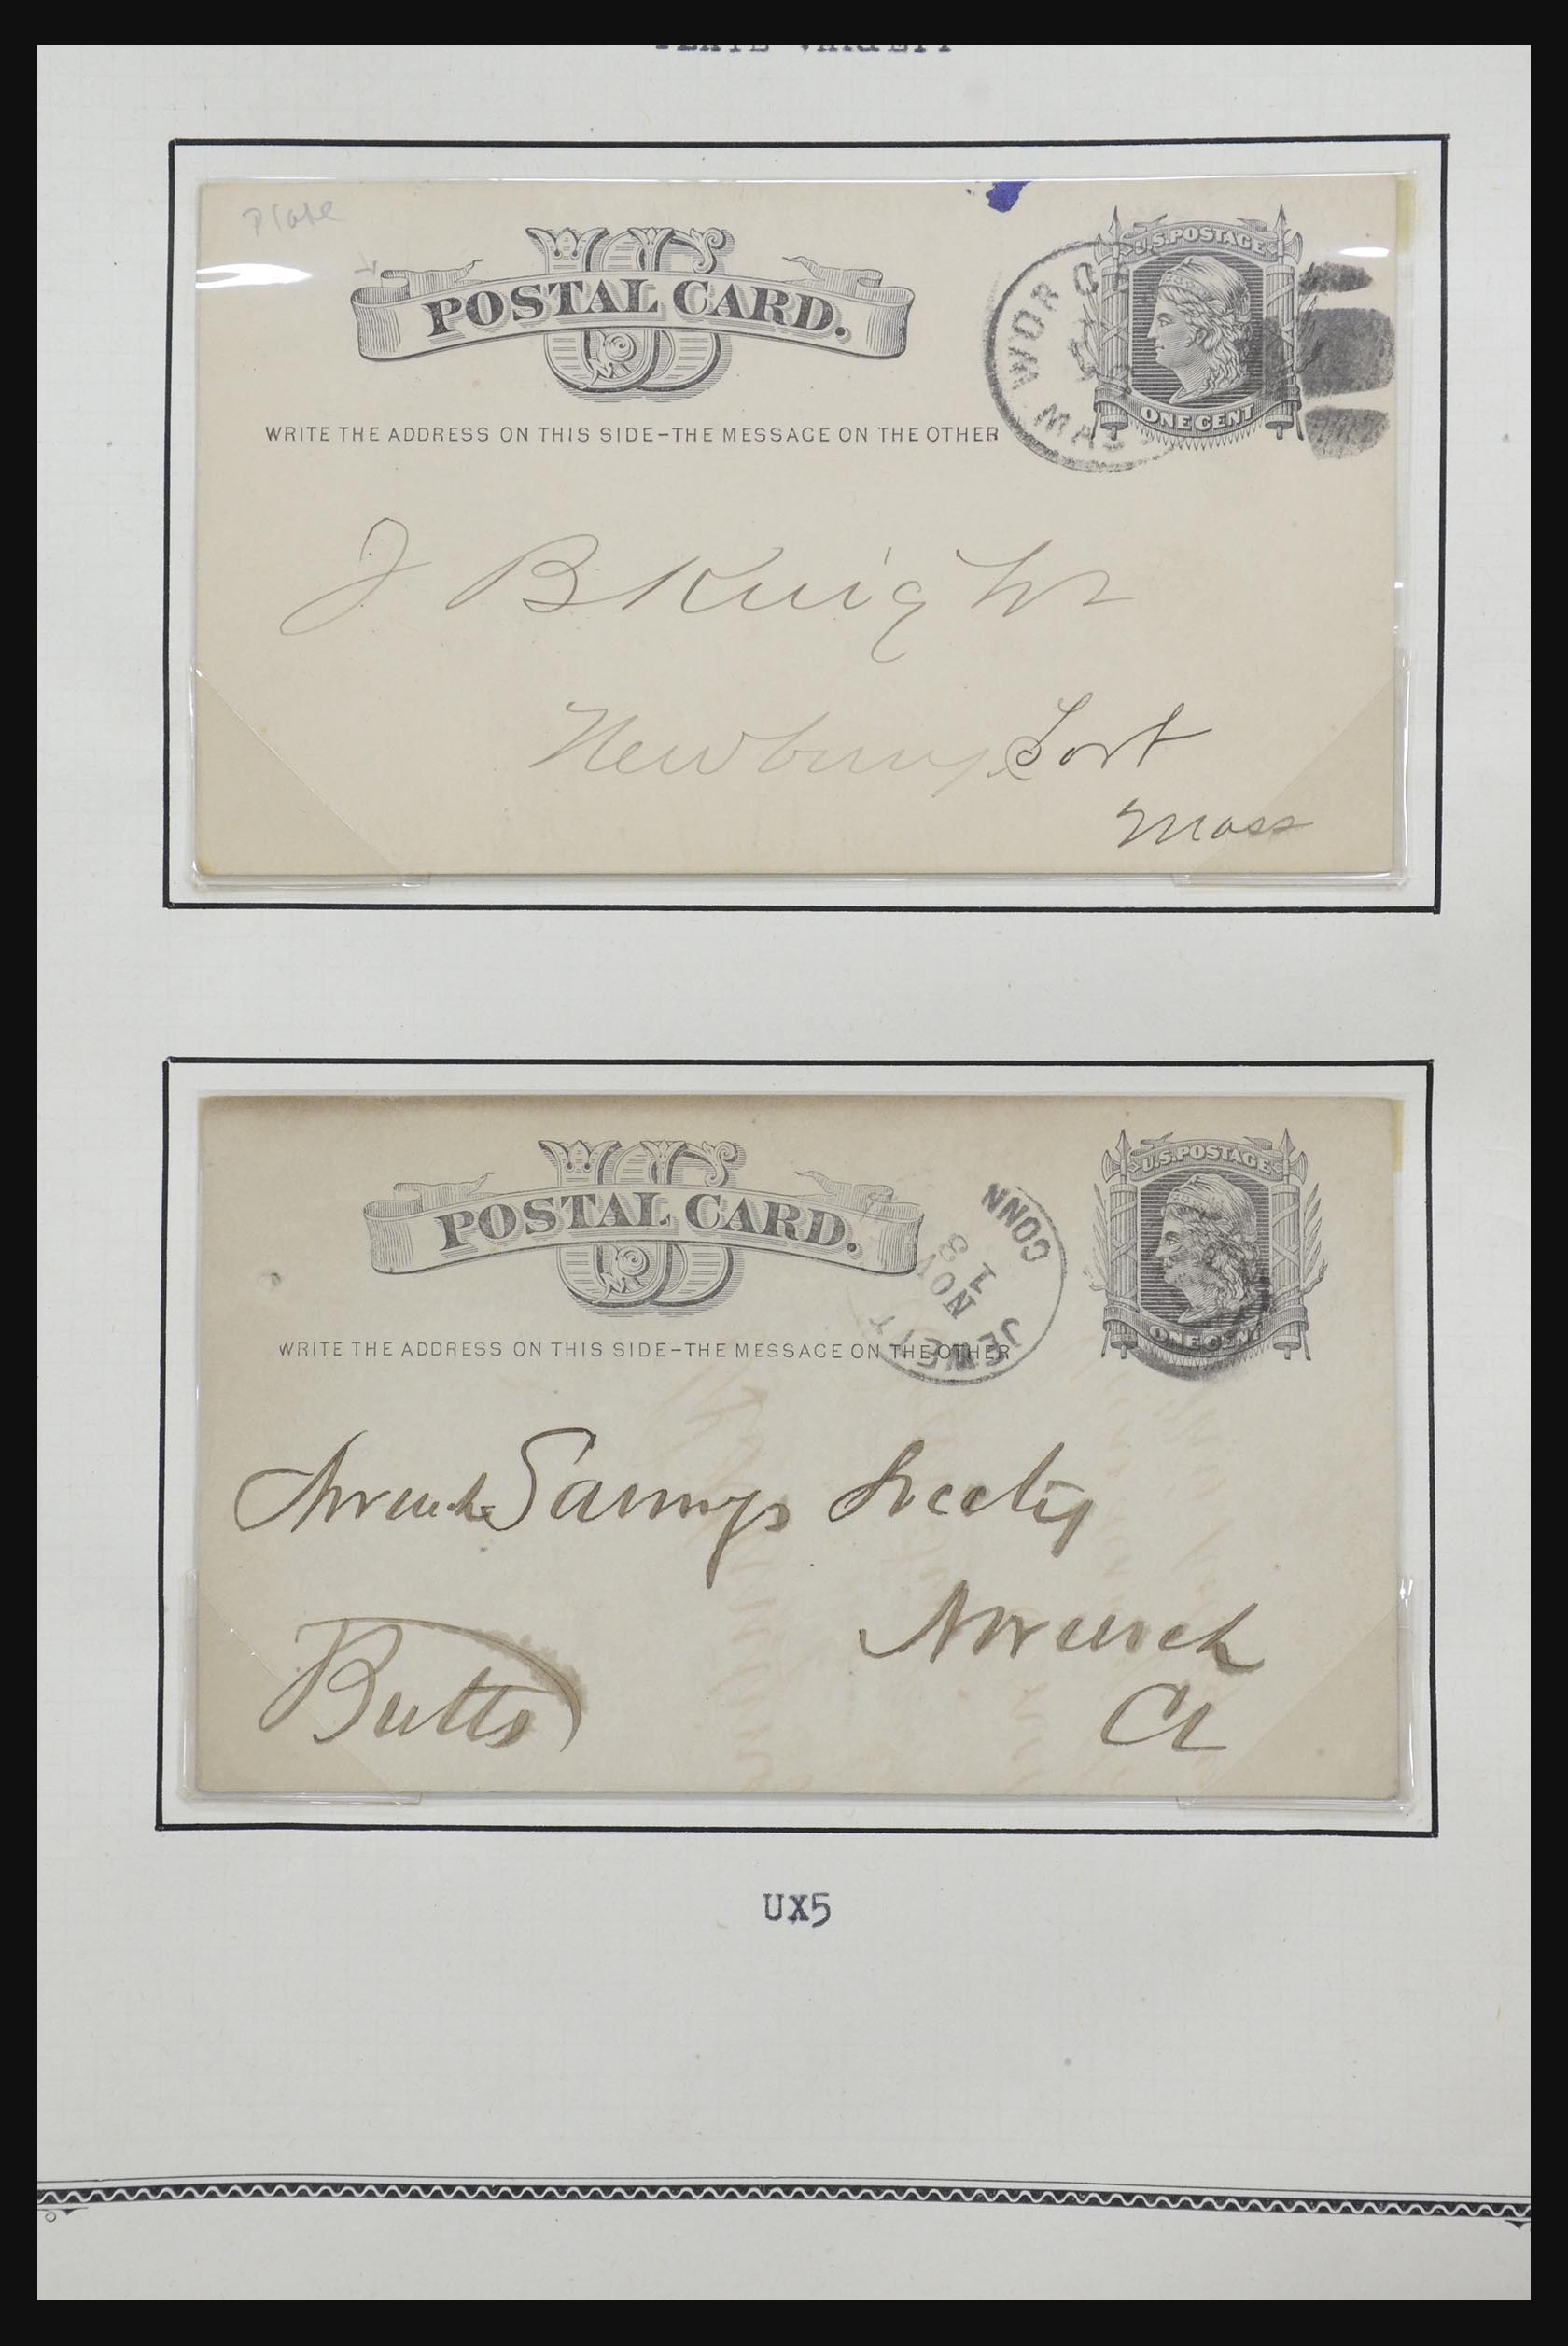 PLATE VARIETY
Plate
US
POSTAL CARD.
U.S. POSTAGE
ONE CENT
WORCE
MASS
WRITE THE ADDRESS ON THIS SIDE–THE MESSAGE ON THE OTHER
J B Knight
Newbury Port
Mass
US
POSTAL CARD.
U.S. POSTAGE
ONE CENT
JEWETT CONN
NOV
18
WRITE THE ADDRESS ON THIS SIDE–THE MESSAGE ON THE OTHER
Norwich Savings Society
Norwich
Ct
Butts
UX5